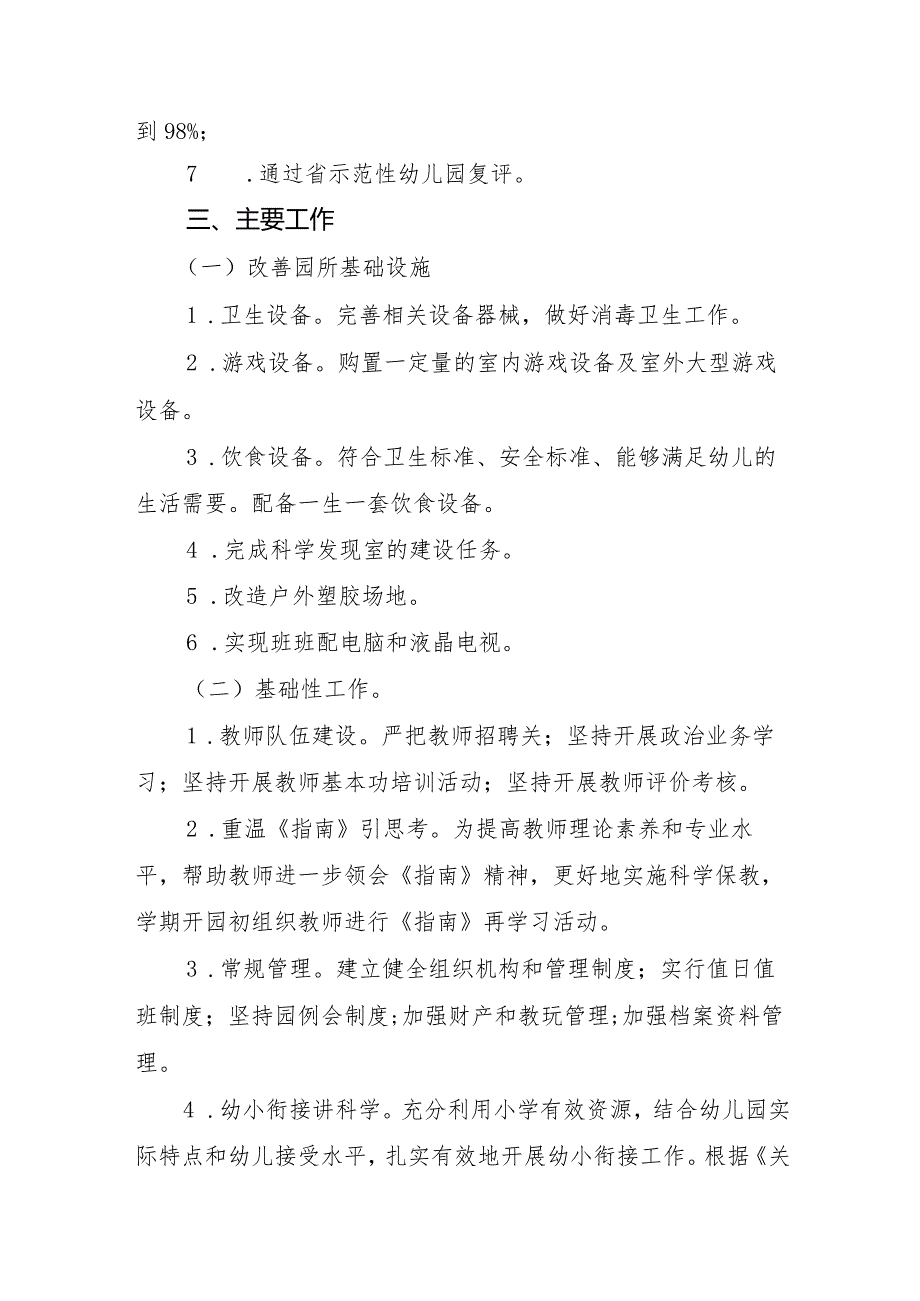 到 98%；
7 .通过省示范性幼儿园复评。
三、主要工作
（一）改善园所基础设施
1 .卫生设备。完善相关设备器械，做好消毒卫生工作。
2 .游戏设备。购置一定量的室内游戏设备及室外大型游戏
设备。
3 .饮食设备。符合卫生标准、安全标准、能够满足幼儿的
生活需要。配备一生一套饮食设备。
4 .完成科学发现室的建设任务。
5 .改造户外塑胶场地。
6 .实现班班配电脑和液晶电视。
（二）基础性工作。
1 .教师队伍建设。严把教师招聘关；坚持开展政治业务学
习；坚持开展教师基本功培训活动；坚持开展教师评价考核。
2 .重温《指南》引思考。为提高教师理论素养和专业水
平，帮助教师进一步领会《指南》精神，更好地实施科学保教，
学期开园初组织教师进行《指南》再学习活动。
3 .常规管理。建立健全组织机构和管理制度；实行值日值
班制度；坚持园例会制度;加强财产和教玩管理;加强档案资料管
理。
4 .幼小衔接讲科学。充分利用小学有效资源，结合幼儿园实
际特点和幼儿接受水平，扎实有效地开展幼小衔接工作。根据《关